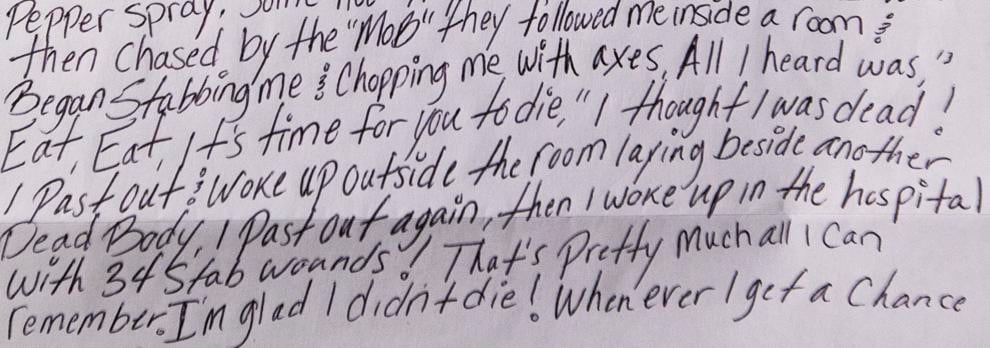 Pepper spray.
then chased by the "MOB" they followed me inside a room &
Began Stabbing me & Chopping me with axes, All I heard was, "
Eat, Eat, It's time for you to die," I thought I was dead!
I Past out & Woke up outside the room laying beside another
Dead Body, I Past out again, then I woke up in the hospital
With 34 Stab wounds! That's Pretty Much all I Can
remember. I'm glad I didn't die! When ever I get a Chance